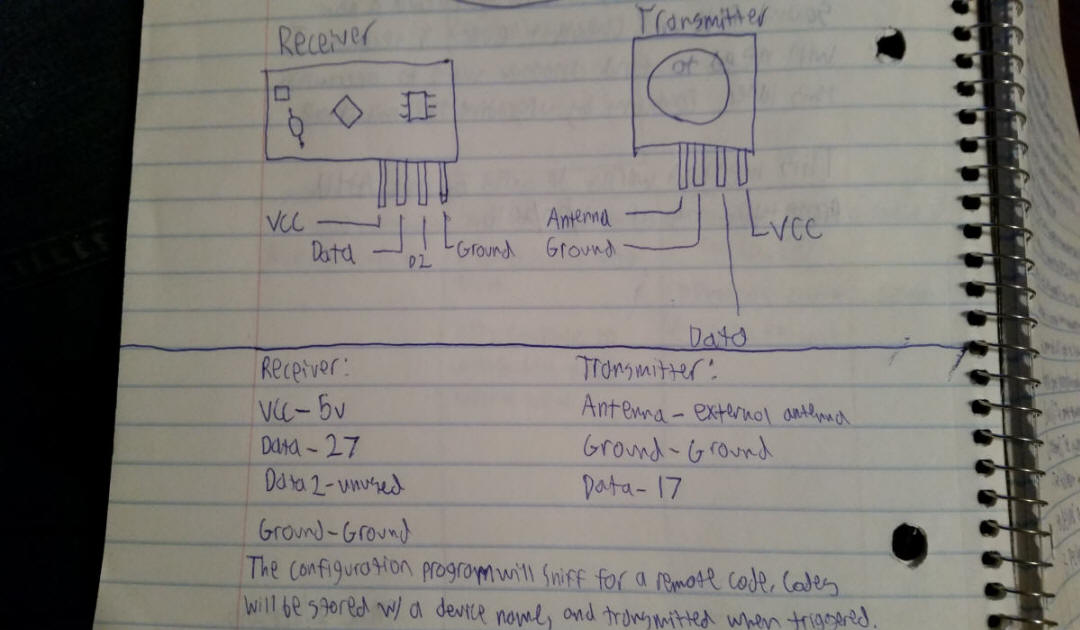 Receiver
Transmitter
VCC
Data
D2
Ground
Antenna
Ground
VCC
Data
Receiver:
VCC - 5v
Data - 27
Data 2 - unused
Ground - Ground
Transmitter:
Antenna - external antenna
Ground - Ground
Data - 17
The configuration program will sniff for a remote code, Codes
will be stored w/ a device name, and transmitted when triggered.